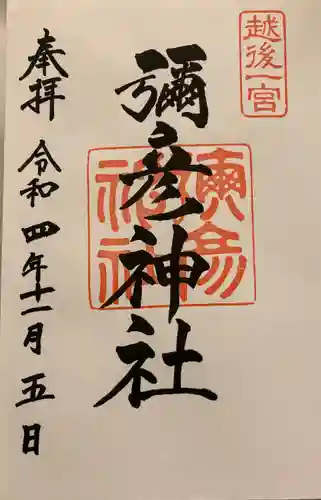 越後一宮
彌彦神社
彌彦神社
奉拝 令和四年十一月五日